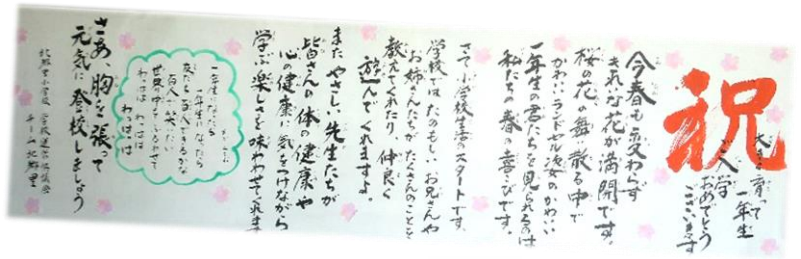 祝
大きく育って
一年生
ご入学
おめでとう
ございます
今春も変わらず
きれいな花が満開です。
桜の花の舞い散る中で
かわいいランドセル姿のかわいい
一年生の君たちを見られるのは
私たちの春の喜びです。
さて小学校生活のスタートです。
学校ではたのもしいお兄さんや
お姉さんたちがたくさんのことを
教えてくれたり、仲良く
遊んでくれますよ。
またやさしい先生たちが
皆さんの体の健康や
心の健康に気をつけながら
学ぶ楽しさを味わわせてくれます
一年生になったら
一年生になったら
友だち百人できるかな
百人で笑いたい
世界中をふるわせて
わっはは わっはは
わっはは
さあ、胸を張って
元気に登校しましょう
小学校 学校運営協議会